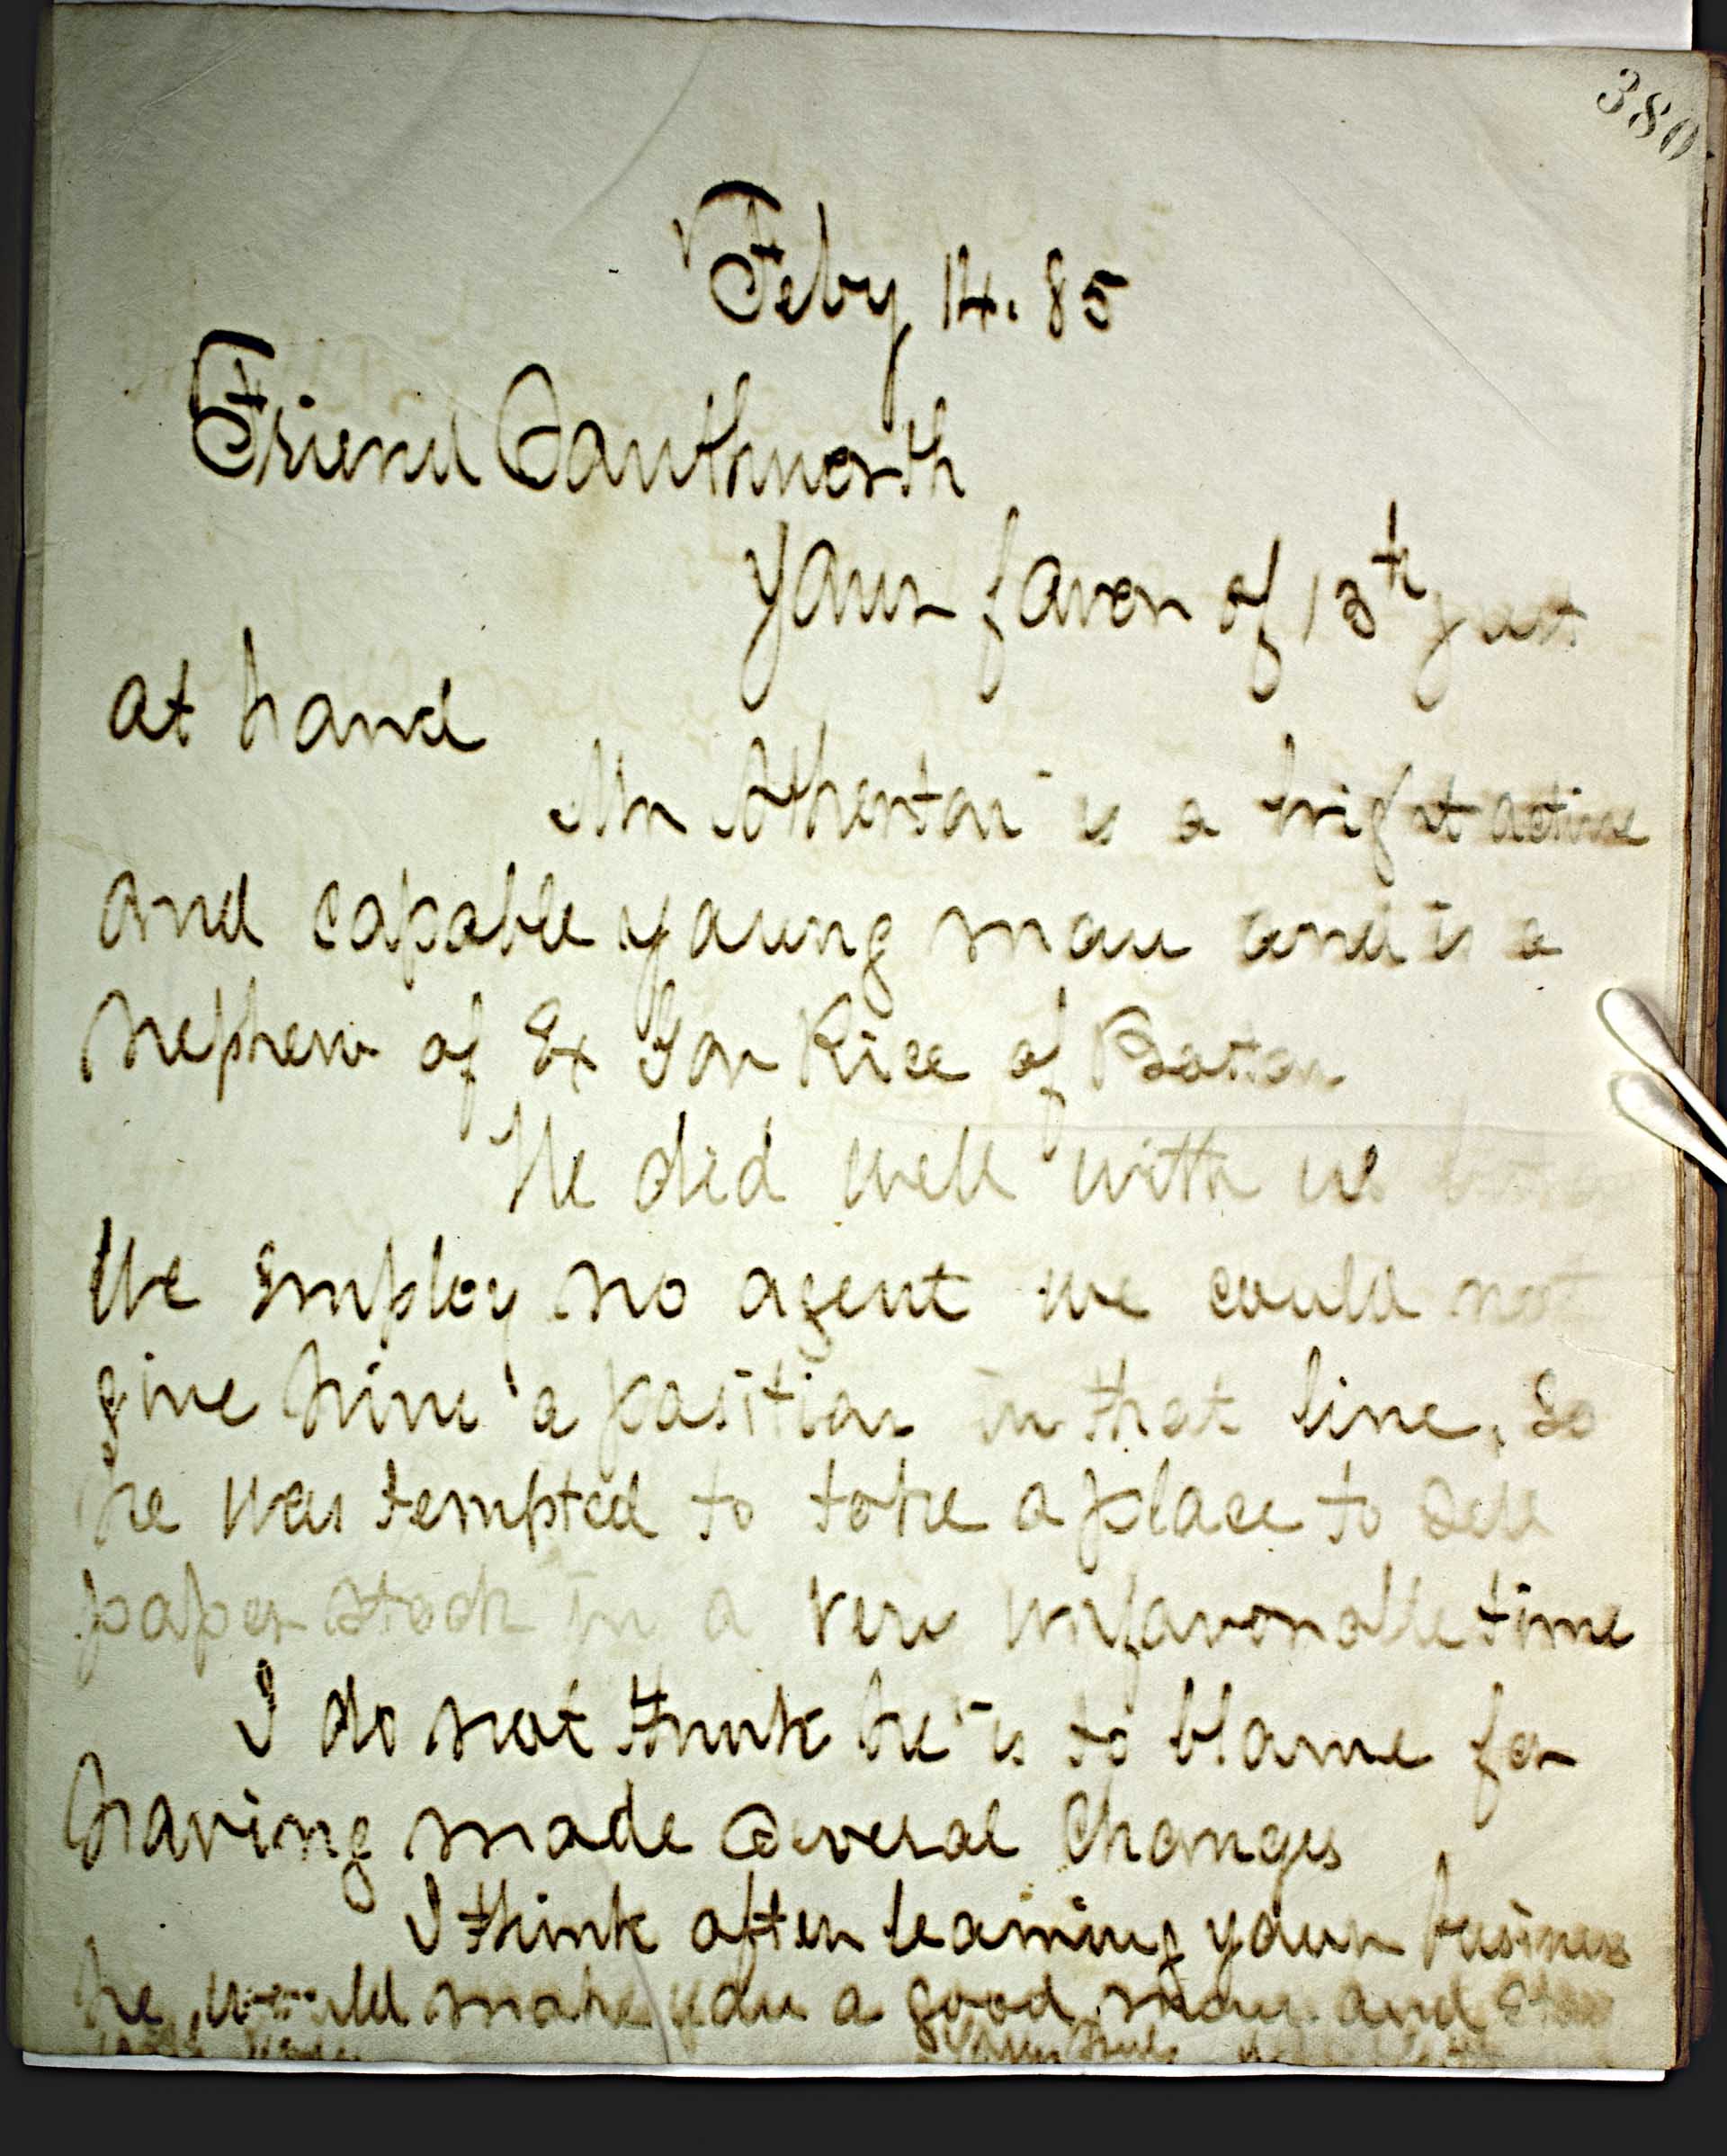 380
Feby 14. 85
Friend Southworth
Your favor of 13th just
at hand
Mr Atherton is a bright active
and capable young man and is a
nephew of Ex Gov Rice of Boston
He did well with us
We employ no agent we could not
give him a position in that line, So
he was tempted to take a place to sell
paper stock in a very unfavorable time
I do not think he is to blame for
having made several changes
I think after learning your business
he would make you a good man and stay
with you Yours Truly